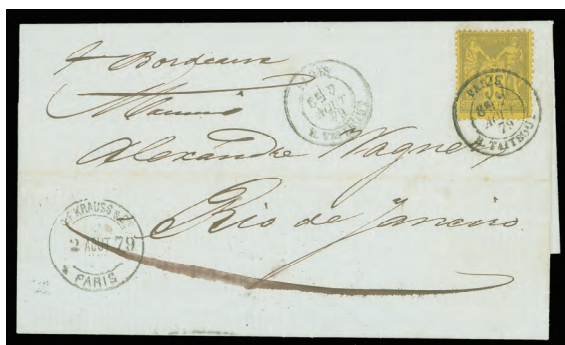 p Bordeaux
Alexandre Wagner
Rio de Janeiro
PARIS
8E/ 2
AOUT
79
R. TAITBOUT
PARIS
8E/ 2
AOUT
79
R. TAITBOUT
KRAUSS &
2 AOUT 79
PARIS